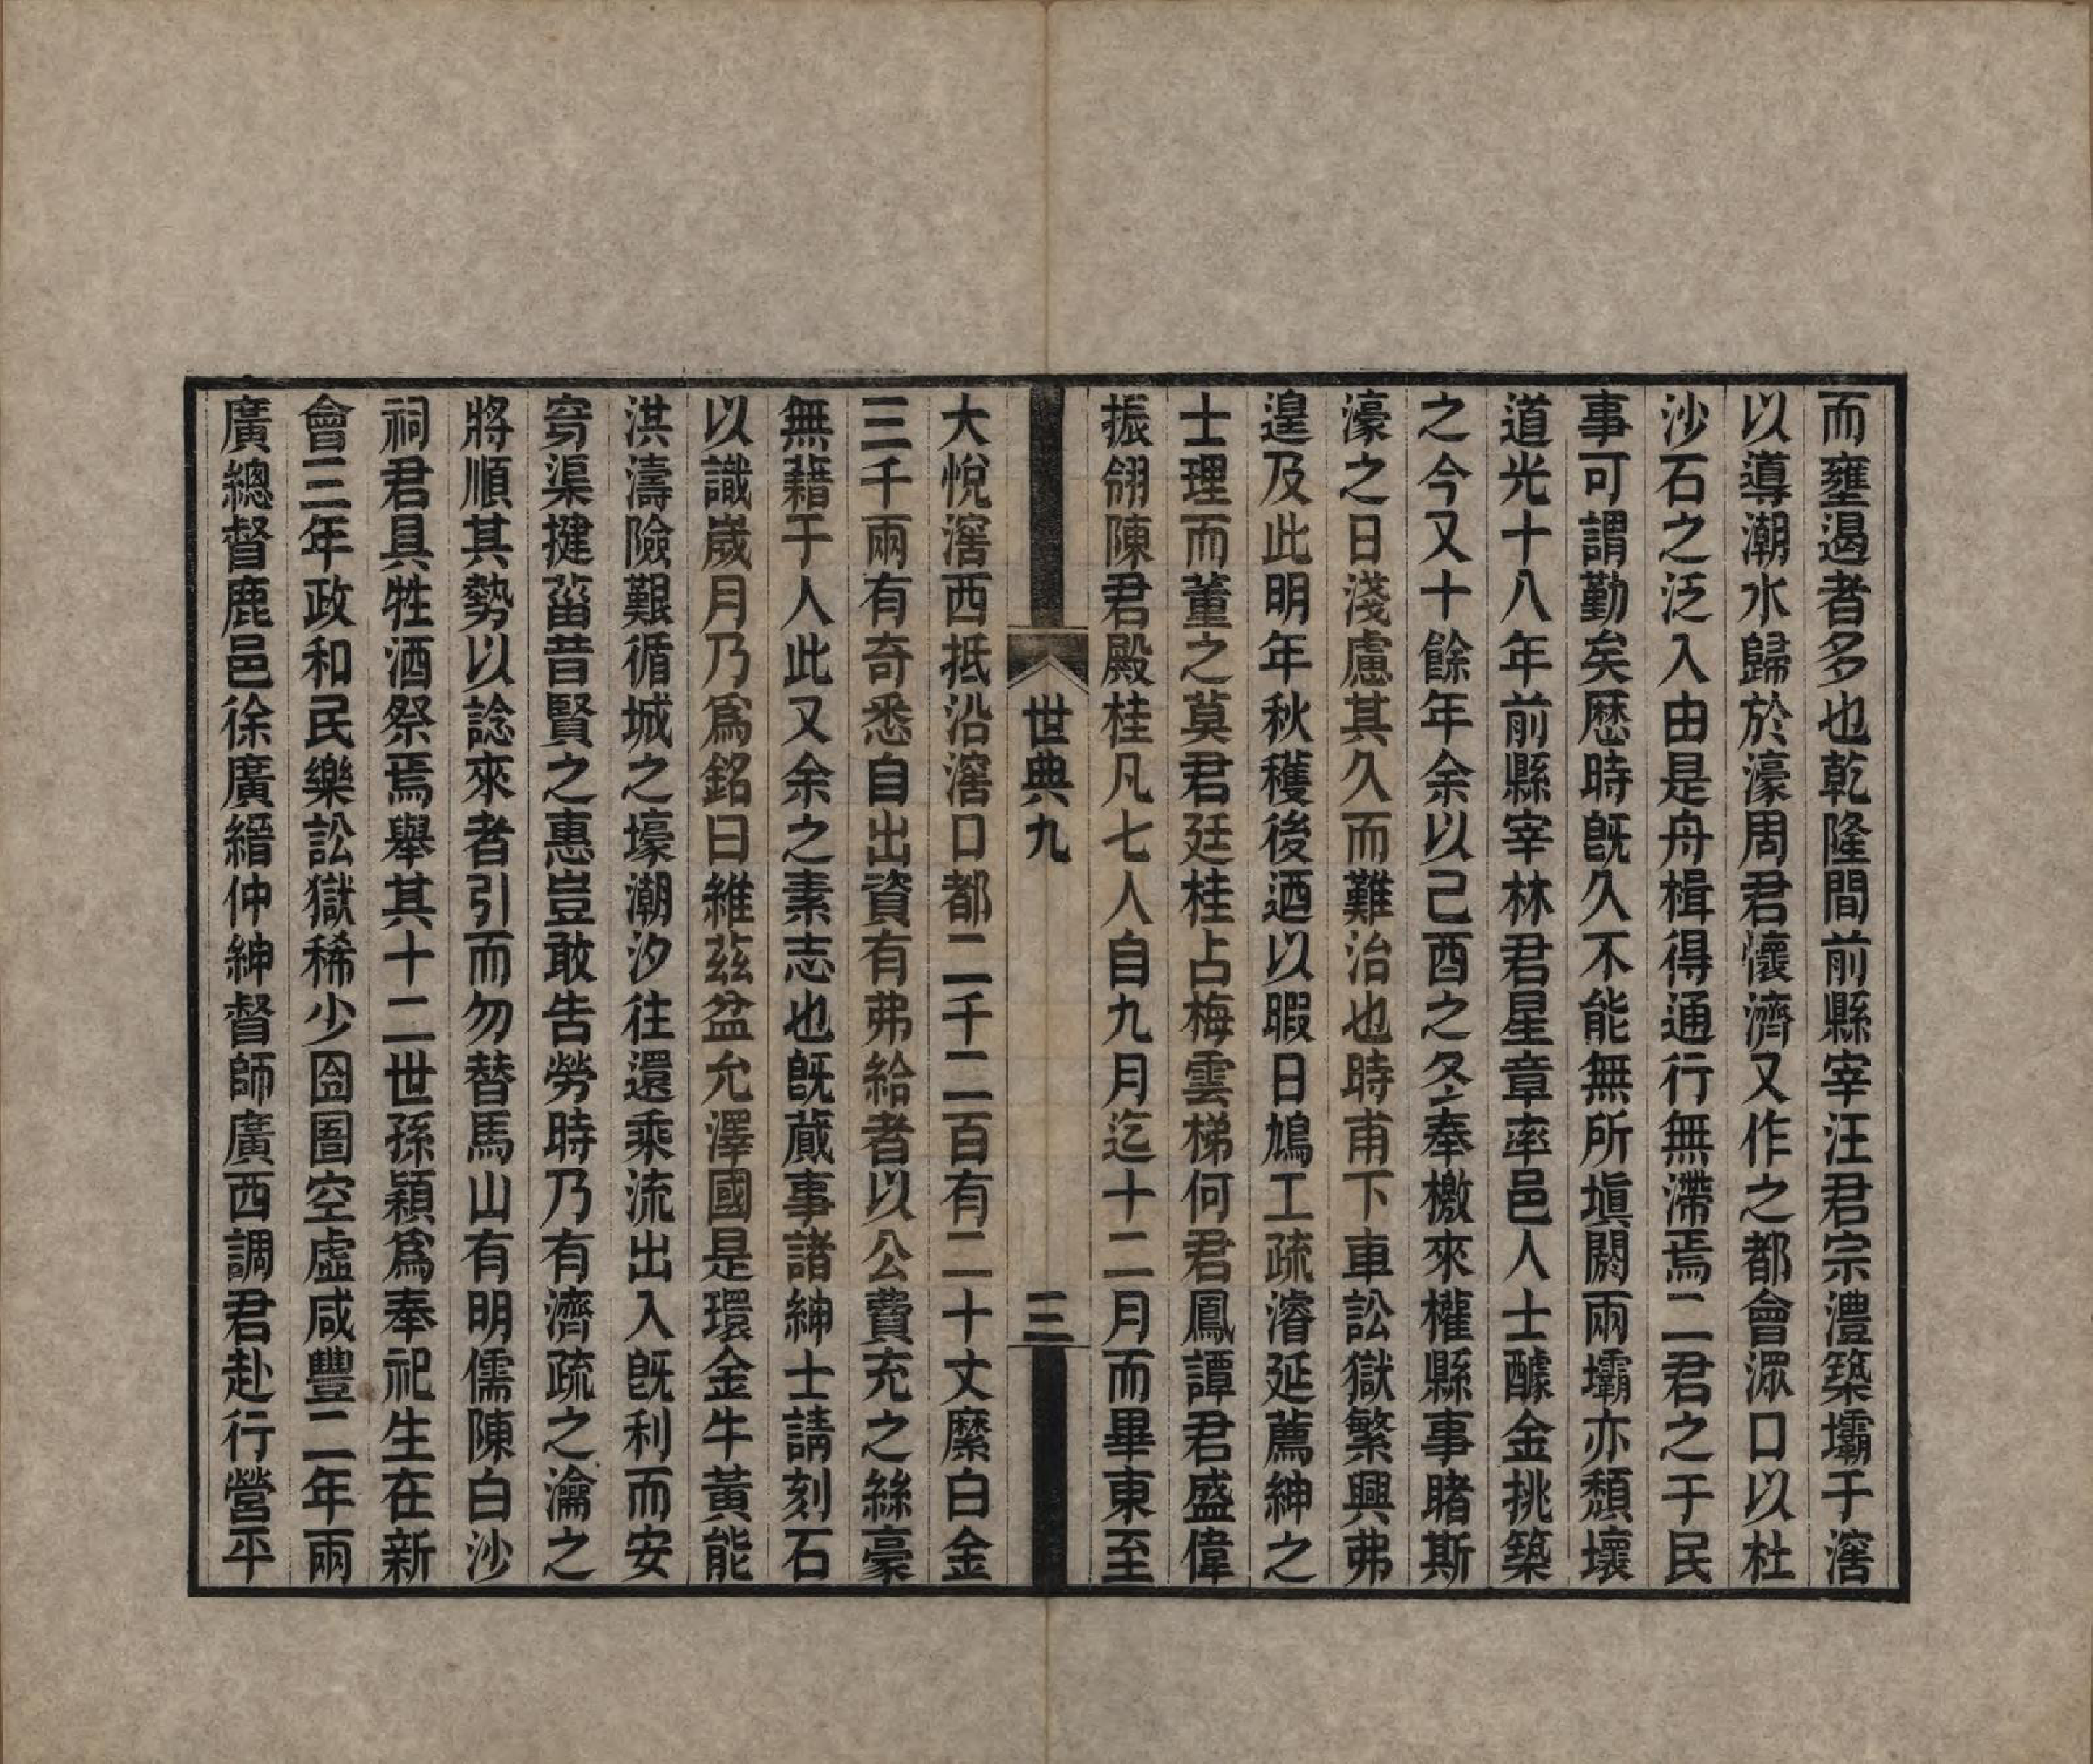 而壅遏者多也乾隆間前縣宰汪君宗澧築壩于滘
以導潮水歸於濠周君懷濟又作之都會㴇口以杜
沙石之泛入由是舟楫得通行無滯焉二君之于民
事可謂勤矣歷時旣久不能無所塡閼兩壩亦頽壞
道光十八年前縣宰林君星章率邑人士醵金挑築
之今又十餘年余以己酉之冬奉檄來權縣事睹斯
濠之日淺慮其久而難治也時甫下車訟獄繁興弗
遑及此明年秋穫後迺以暇日鳩工疏濬延薦紳之
士理而董之莫君廷桂占梅雲梯何君鳳譚君盛偉
振翎陳君殿桂凡七人自九月迄十二月而畢東至
世典九
三
大悅滘西抵沿滘口都二千二百有二十丈縻白金
三千兩有奇悉自出資有弗給者以公費充之絲豪
無藉于人此又余之素志也旣蕆事諸紳士請刻石
以識歲月乃爲銘曰維茲盆允澤國是環金牛黃能
洪濤險艱循城之壕潮汐往還乘流出入旣利而安
穿渠揵菑昔賢之惠豈敢告勞時乃有濟疏之瀹之
將順其勢以諗來者引而勿替馬山有明儒陳白沙
祠君具牲酒祭焉舉其十二世孫潁爲奉祀生在新
會三年政和民樂訟獄稀少囹圄空虛咸豐二年兩
廣總督鹿邑徐廣縉仲紳督師廣西調君赴行營平